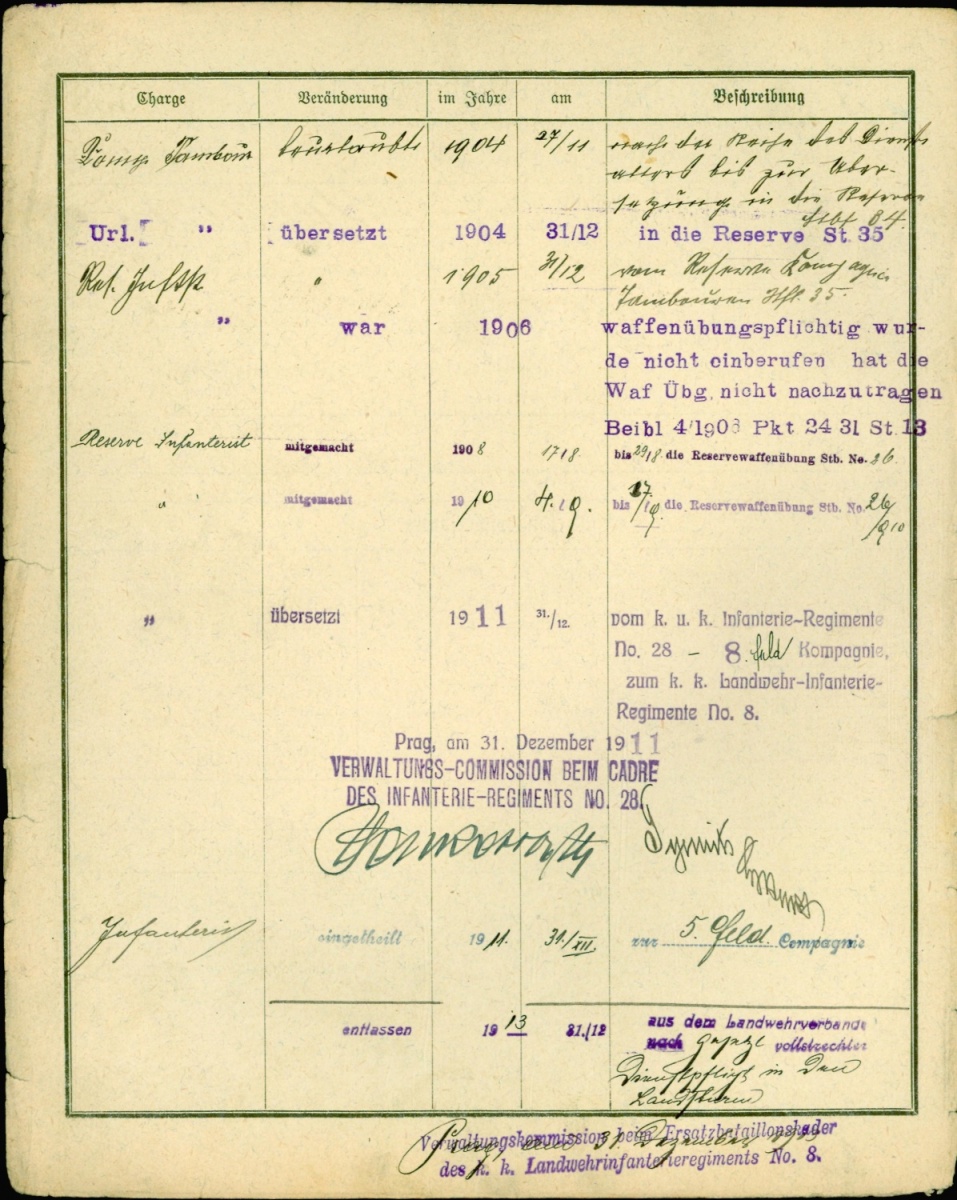 Charge Veränderung im Jahre am Beschreibung
Komp. Tambour beurlaubt 1904 27/11 nach der Reihe des Dienst-
alters bis zur Über-
setzung in die Reserve
Stbf 84.
Url. " übersetzt 1904 31/12 in die Reserve St. 35
Res. Inftst " 1905 31/12 vom Reserve Kompagnie
Tambouren Stf. 35.
" war 1906 waffenübungspflichtig wur-
de nicht einberufen hat die
Waf Übg. nicht nachzutragen
Beibl 4/1906 Pkt 24 31 St. 13
Reserve Infanterist mitgemacht 1908 17/8 bis 29/8. die Reservewaffenübung Stb. No. 26.
" mitgemacht 1910 4./9. bis 17./9. die Reservewaffenübung Stb. No. 26
/910
" übersetzt 1911 31./12. vom k. u. k. Infanterie-Regimente
No. 28 – 8. feld Kompagnie,
zum k. k. Landwehr-Infanterie-
Regimente No. 8.
Prag, am 31. Dezember 1911
VERWALTUNGS-COMMISSION BEIM CADRE
DES INFANTERIE-REGIMENTS NO. 28.
Infanterist eingetheilt 1911. 31./XII. zur 5. Feld. Compagnie
entlassen 1913 31./12 aus dem Landwehrverbande
nach gesetzl vollstreckter
Dienstpflicht in den
Landsturm
Prag, am 31. Dezember 1913
Verwaltungskommission beim Ersatzbataillonskader
des k. k. Landwehrinfanterieregiments No. 8.